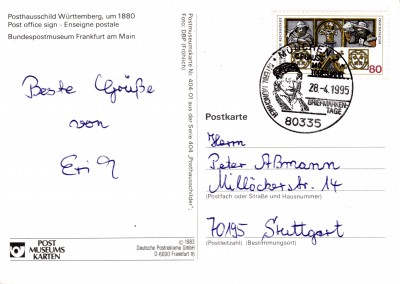 Posthausschild Württemberg, um 1880
Post office sign - Enseigne postale
Bundespostmuseum Frankfurt am Main
Beste Grüße
von
Postmuseumskarte Nr. 404-01 aus der Serie 404 „Posthausschilder“;
Foto: DBP (Fröhlich)
POST
MUSEUMS
KARTEN
© 1983
Deutsche Postreklame GmbH
D-6000 Frankfurt 16
80
MÜNCHEN
28.-4.1995
BRIEFMARKEN-
TAGE
80335
Postkarte
Herrn
Peter Aßmann
Millöckerstr. 14
(Postfach oder Straße und Hausnummer)
70195 Stuttgart
(Postleitzahl) (Bestimmungsort)